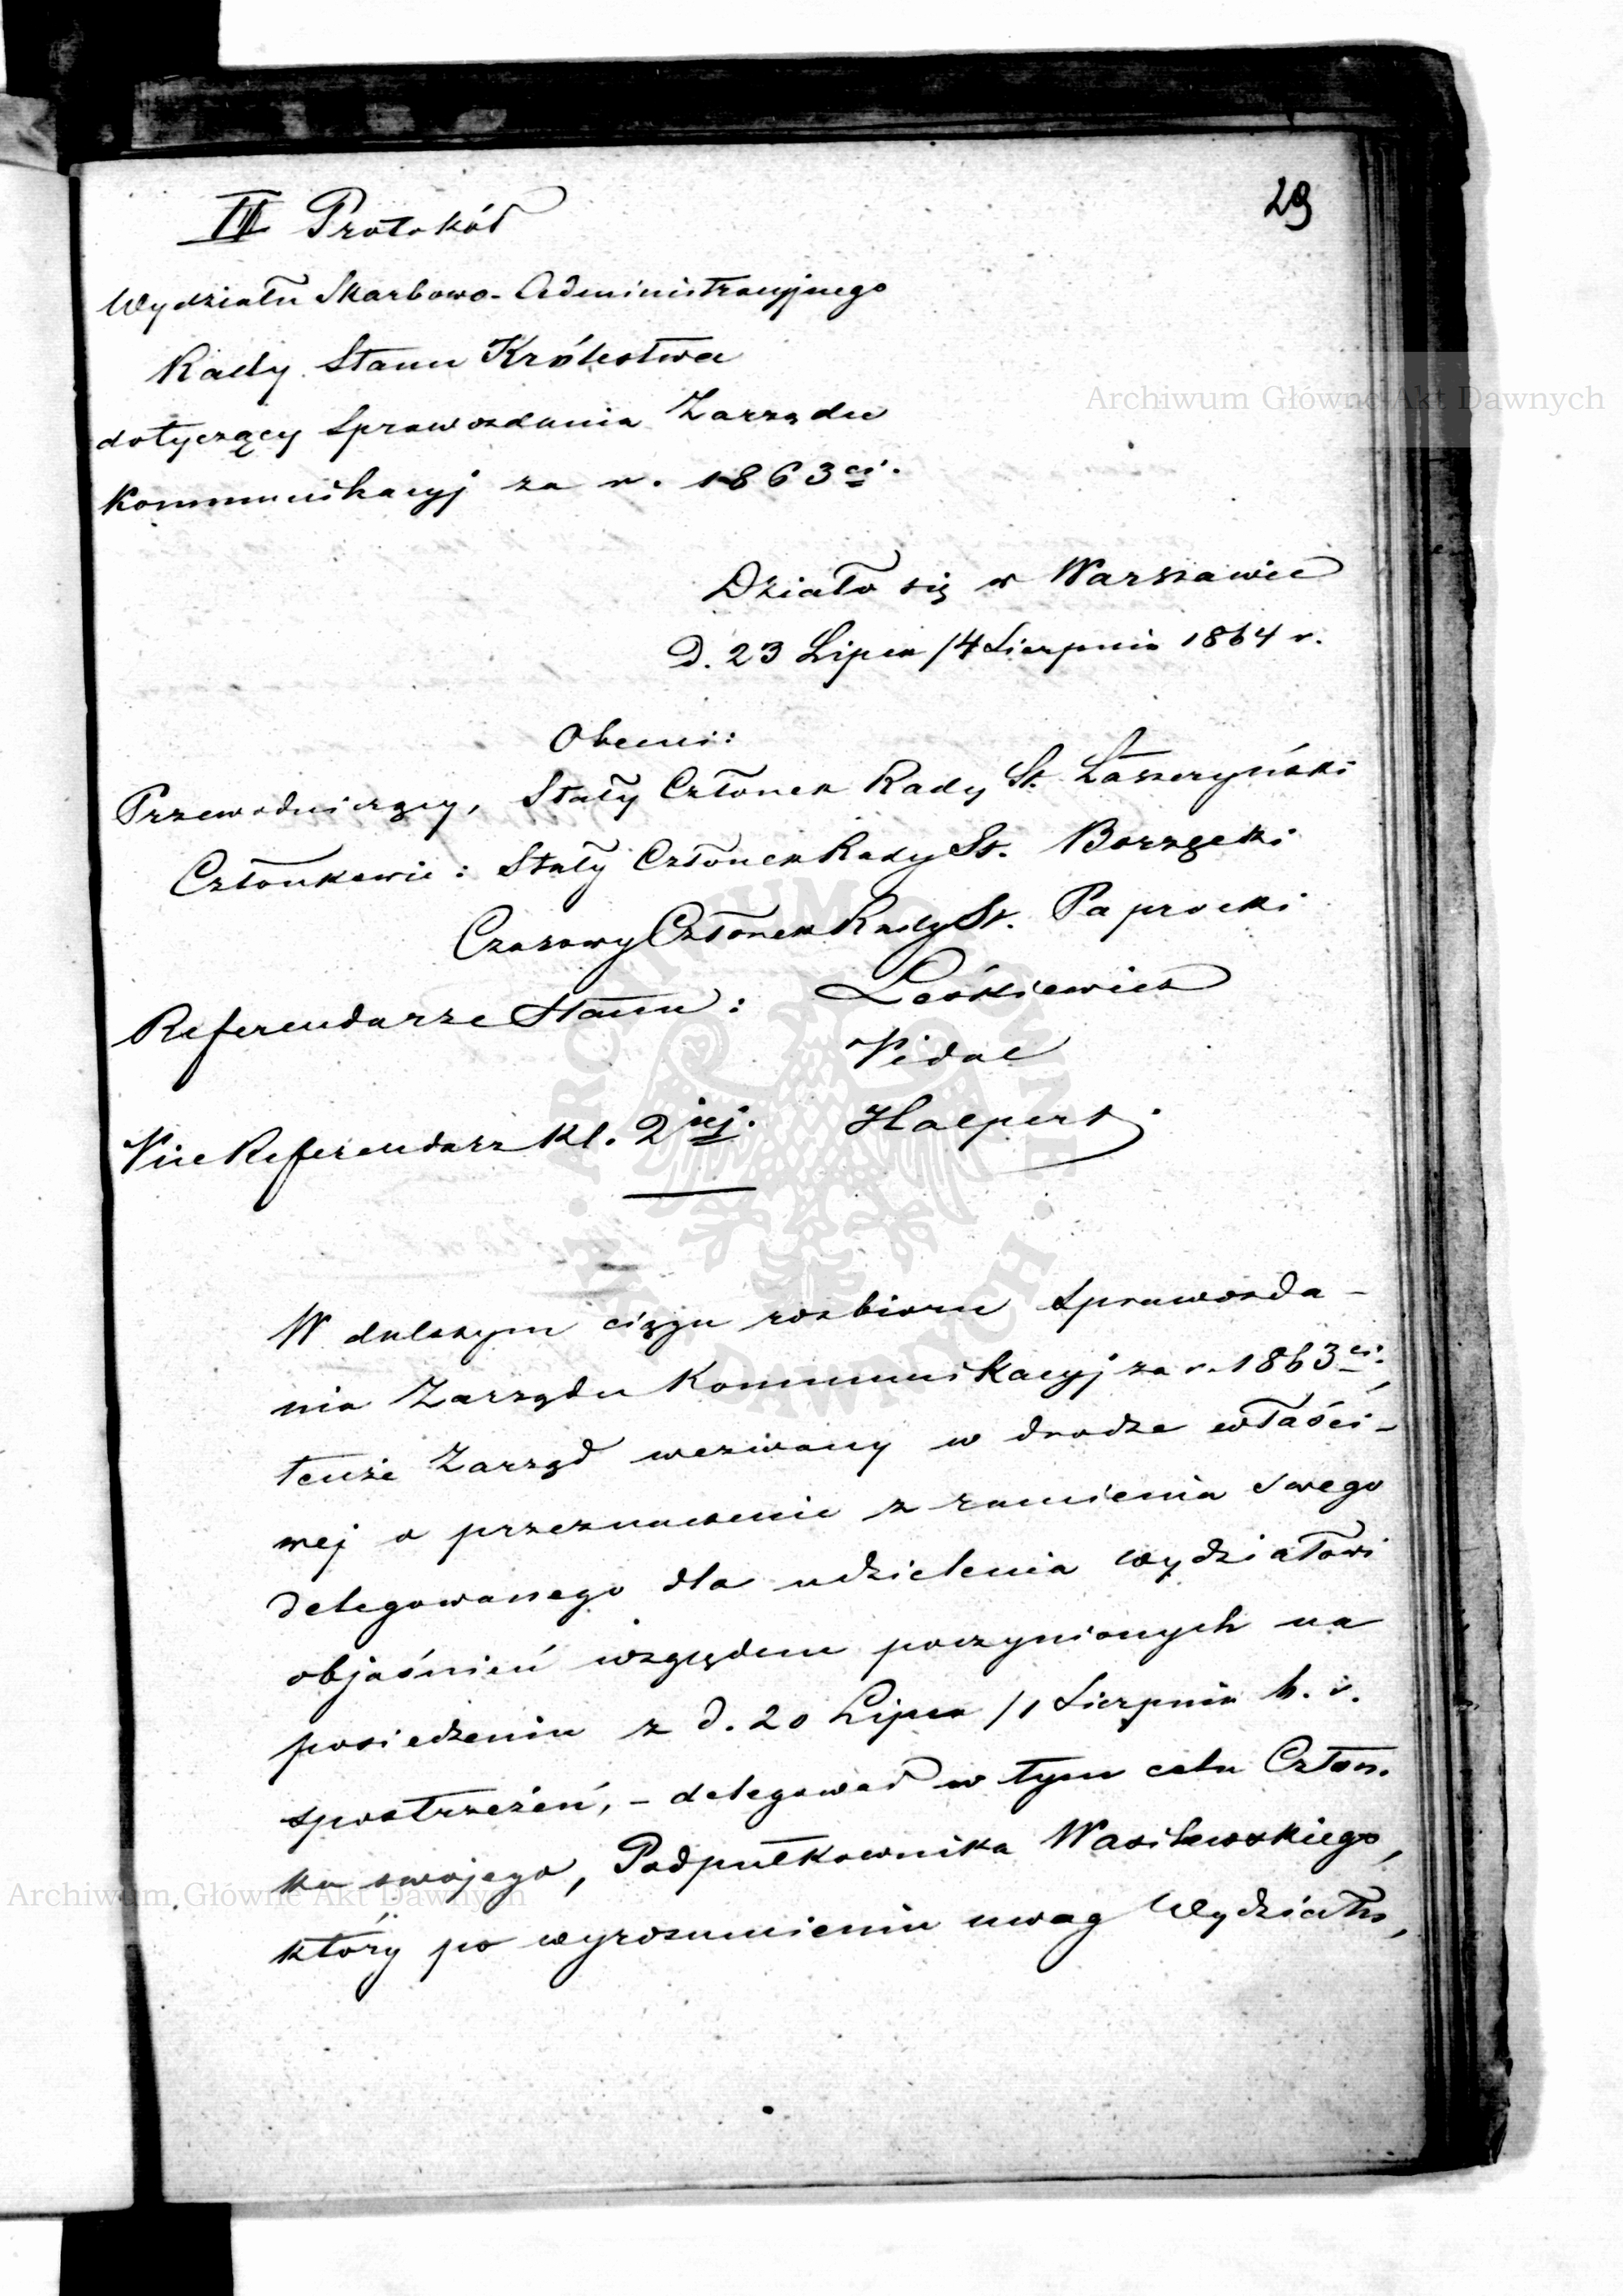 29
III Protokół
Wydziału Skarbowo-Administracyjnego
Rady Stanu Królestwa
dotyczący Sprawozdania Zarządu
Kommunikacyj za r. 1863ci.
Archiwum Główne Akt Dawnych
Działo się w Warszawie
D. 23 Lipca /4 Sierpnia 1864 r.
Obecni:
Przewodniczący, Stały Członek Rady St. Łaszczyński
Członkowie: Stały Członek Rady St. Borzęcki
Czasowy Członek Rady St. Paprocki
Referendarze Stanu: Leśkiewicz
Vidal
Vice Referendarz kl. 2iej. Halpert.
ARCHIWUM GŁÓWNE AKT DAWNYCH
W dalszym ciągu rozbioru Sprawozda-
nia Zarządu Kommunikacyj za r. 1863ci.,
tenże Zarząd wezwany w drodze właści-
wej o przeznaczenie z ramienia swego
delegowanego dla udzielenia Wydziałowi
objaśnień względem poczynionych na
posiedzeniu z d. 20 Lipca /1 Sierpnia b. r.
spostrzeżeń, - delegował w tym celu Człon-
ka swojego, Podpułkownika Wasilewskiego,
Archiwum Główne Akt Dawnych
który po wyrozumieniu uwag Wydziału,